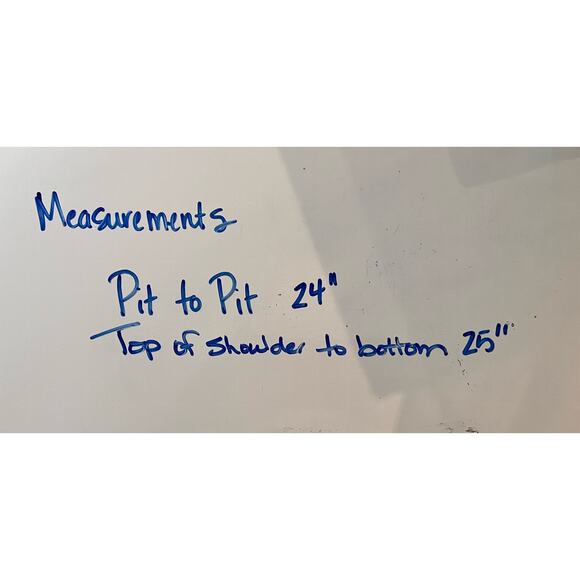 Measurements
Pit to Pit 24"
Top of shoulder to bottom 25"